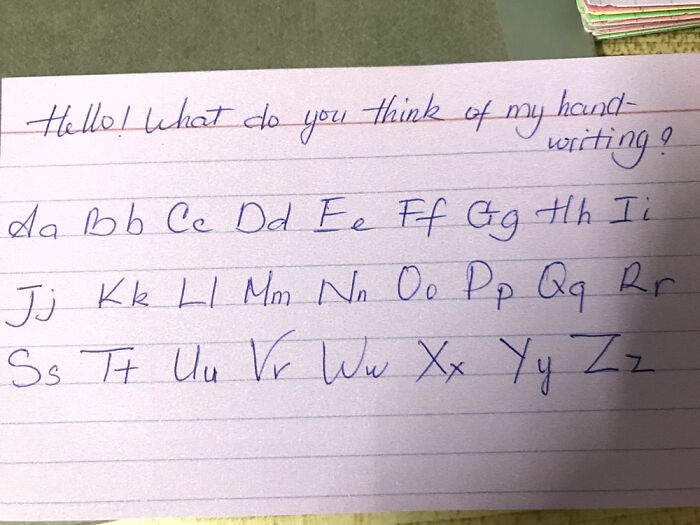 Hello! What do you think of my hand-
writing?
Aa Bb Cc Dd Ee Ff Gg Hh Ii
Jj Kk Ll Mm Nn Oo Pp Qq Rr
Ss Tt Uu Vv Ww Xx Yy Zz